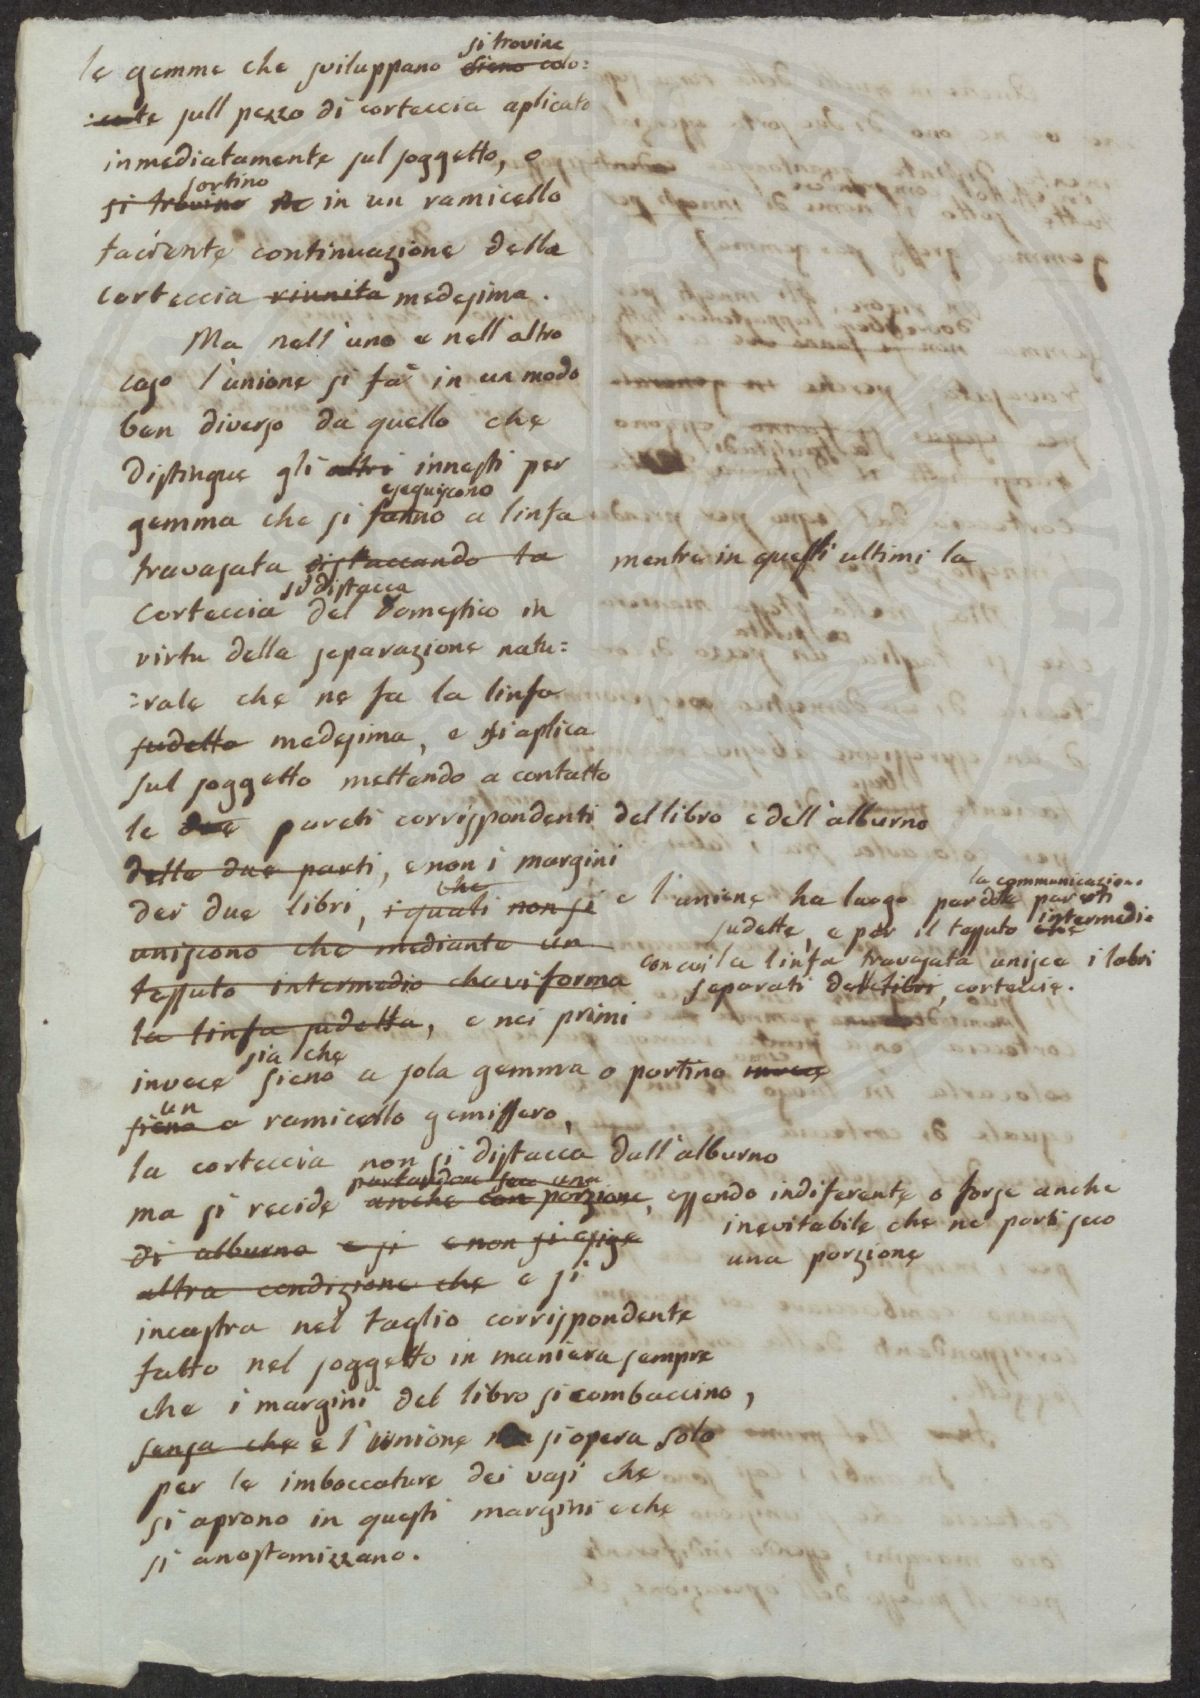 le gemme che sviluppano si trovine sieno colo:
:cate sull pezzo di corteccia aplicato
inmediatamente sul soggetto, o
si trovino sortino in un ramicello
faciente continuazione della
corteccia riunita medesima.
Ma nell'uno e nell'altro
caso l'unione si fa in un modo
ben diverso da quello che
distingue gli altri innesti per
gemma che si fanno eseguiscono a linfa
travasata distaccando la mentre in questi ultimi la
corteccia si distacca del domestico in
virtu della separazione natu:
:rale che ne fa la linfa
sudetta medesima, e si aplica
sul soggetto mettendo a contatto
le due pareti corrispondenti del libro e dell'alburno
delle due parti, e non i margini
dei due libri, i quali che non si
uniscono che mediante un
tessuto intermedio che vi forma
la linfa sudetta, e nei primi
e l'unione ha luogo per la communicazione pareti
sudette, e per il tessuto che intermedio
con cui la linfa travasata unisce i labri
separati delle corteccie.
invece sia che sieno a sola gemma o portino invece
sieno un a ramicello gemiffero,
la corteccia non si distacca dall'alburno
ma si recide portandone seco una anche con porzione, essendo indiferente o forse anche
inevitabile che ne porti seco
una porzione
di alburno e si e non si esige
altra condizione che e si
incastra nel taglio corrispondente
fatto nel soggetto in maniera sempre
che i margini del libro si combaccino,
senza che e l'unione si opera solo
per le imboccature dei vasi che
si aprono in questi margini e che
si anastomizzano.